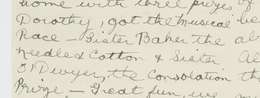 home with three prizes of
Dorothy, got the musical be
Race - Sister Baker the al
needles Cotton & Sister. Al
O'Dwyer, the Consolation th
Prize - Great fun, we